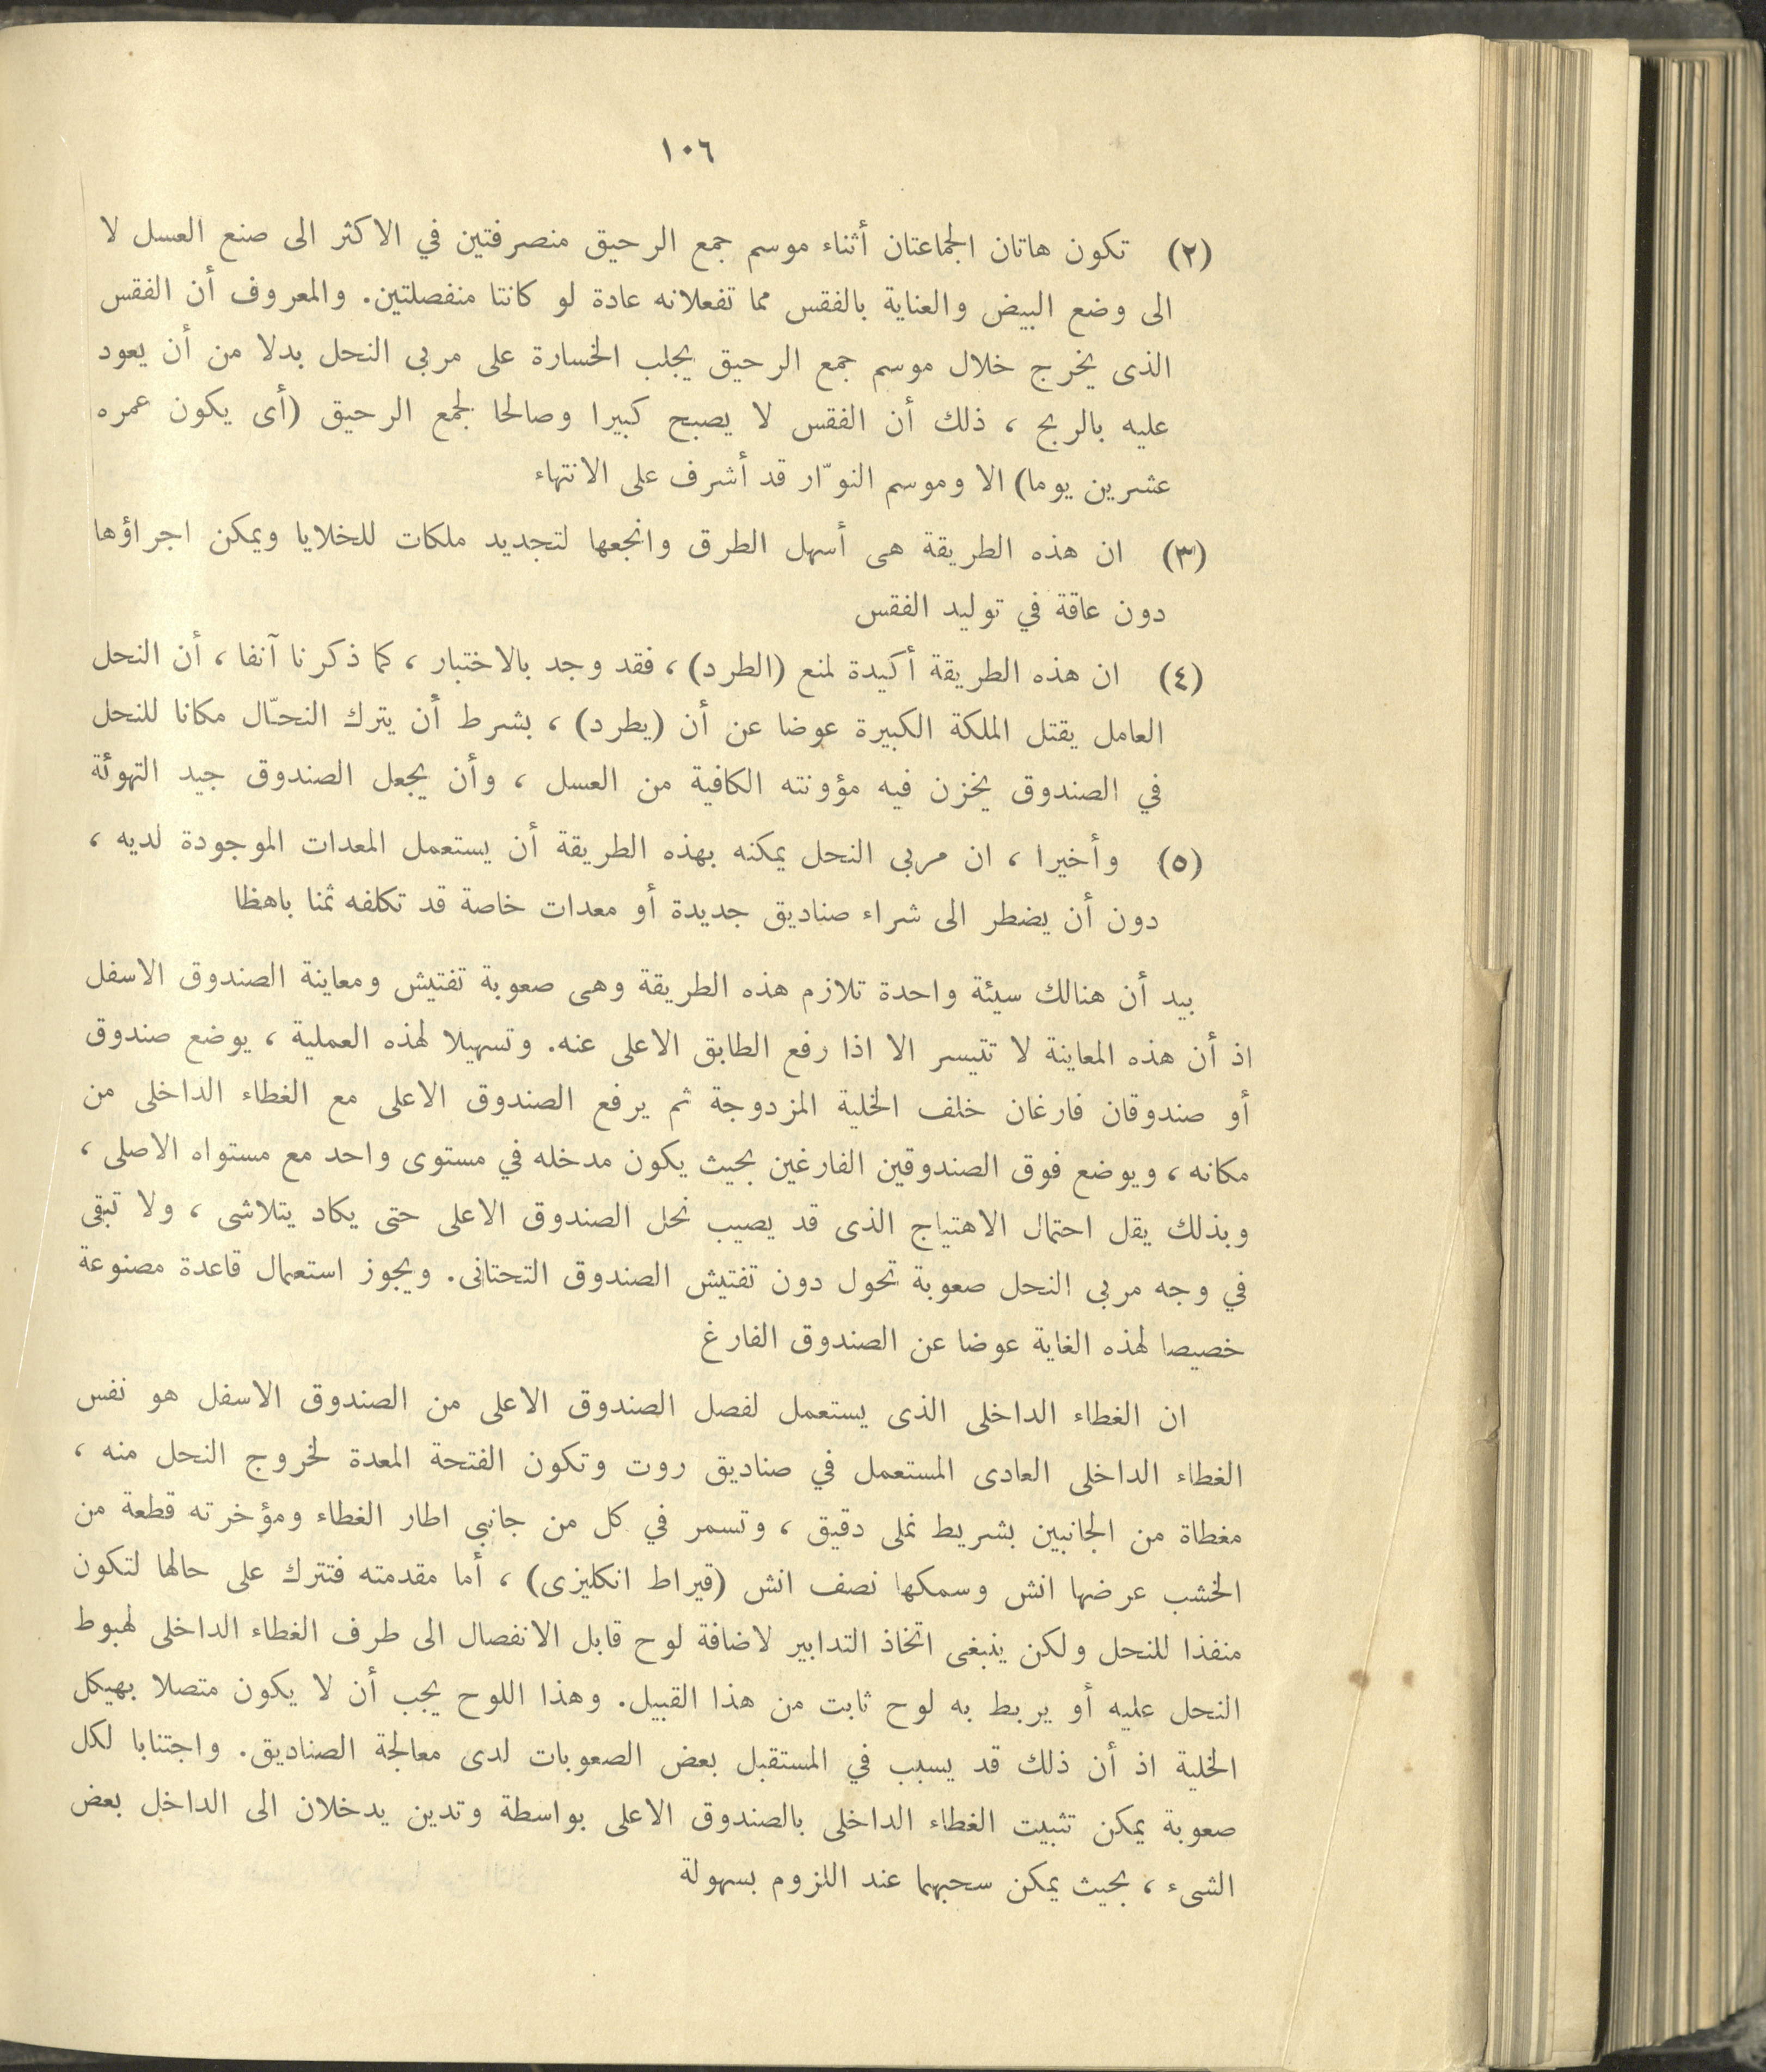 ١٠٦
(٢) تكون هاتان الجماعتان أثناء موسم جمع الرحيق منصرفتين في الاكثر الى صنع العسل لا
الى وضع البيض والعناية بالفقس مما تفعلانه عادة لو كانتا منفصلتين. والمعروف أن الفقس
الذى يخرج خلال موسم جمع الرحيق يجلب الخسارة على مربى النحل بدلا من أن يعود
عليه بالربح ، ذلك أن الفقس لا يصبح كبيرا وصالحا لجمع الرحيق (أى يكون عمره
عشرين يوما) الا وموسم النوّار قد أشرف على الانتهاء
(٣) ان هذه الطريقة هى أسهل الطرق وانجعها لتجديد ملكات للخلايا ويمكن اجراؤها
دون عاقة في توليد الفقس
(٤) ان هذه الطريقة أكيدة لمنع (الطرد) ، فقد وجد بالاختبار ، كما ذكرنا آنفا ، أن النحل
العامل يقتل الملكة الكبيرة عوضا عن أن (يطرد) ، بشرط أن يترك النحّال مكانا للنحل
في الصندوق يخزن فيه مؤونته الكافية من العسل ، وأن يجعل الصندوق جيد التهوئة
(٥) وأخيرا ، ان مربى النحل يمكنه بهذه الطريقة أن يستعمل المعدات الموجودة لديه ،
دون أن يضطر الى شراء صناديق جديدة أو معدات خاصة قد تكلفه ثمنا باهظا
بيد أن هنالك سيئة واحدة تلازم هذه الطريقة وهى صعوبة تفتيش ومعاينة الصندوق الاسفل
اذ أن هذه المعاينة لا تتيسر الا اذا رفع الطابق الاعلى عنه. وتسهيلا لهذه العملية ، يوضع صندوق
أو صندوقان فارغان خلف الخلية المزدوجة ثم يرفع الصندوق الاعلى مع الغطاء الداخلى من
مكانه ، ويوضع فوق الصندوقين الفارغين بحيث يكون مدخله في مستوى واحد مع مستواه الاصلى ،
وبذلك يقل احتمال الاهتياج الذى قد يصيب نحل الصندوق الاعلى حتى يكاد يتلاشى ، ولا تبقى
في وجه مربى النحل صعوبة تحول دون تفتيش الصندوق التحتانى. ويجوز استعمال قاعدة مصنوعة
خصيصا لهذه الغاية عوضا عن الصندوق الفارغ
ان الغطاء الداخلى الذى يستعمل لفصل الصندوق الاعلى من الصندوق الاسفل هو نفس
الغطاء الداخلى العادى المستعمل في صناديق روت وتكون الفتحة المعدة لخروج النحل منه ،
مغطاة من الجانبين بشريط نملى دقيق ، وتسمر في كل من جانبى اطار الغطاء ومؤخرته قطعة من
الخشب عرضها انش وسمكها نصف انش (قيراط انكليزى) ، أما مقدمته فتترك على حالها لتكون
منفذا للنحل ولكن ينبغى اتخاذ التدابير لاضافة لوح قابل الانفصال الى طرف الغطاء الداخلى لهبوط
النحل عليه أو يربط به لوح ثابت من هذا القبيل. وهذا اللوح يجب أن لا يكون متصلا بهيكل
الخلية اذ أن ذلك قد يسبب في المستقبل بعض الصعوبات لدى معالجة الصناديق. واجتنابا لكل
صعوبة يمكن تثبيت الغطاء الداخلى بالصندوق الاعلى بواسطة وتدين يدخلان الى الداخل بعض
الشىء ، بحيث يمكن سحبهما عند اللزوم بسهولة